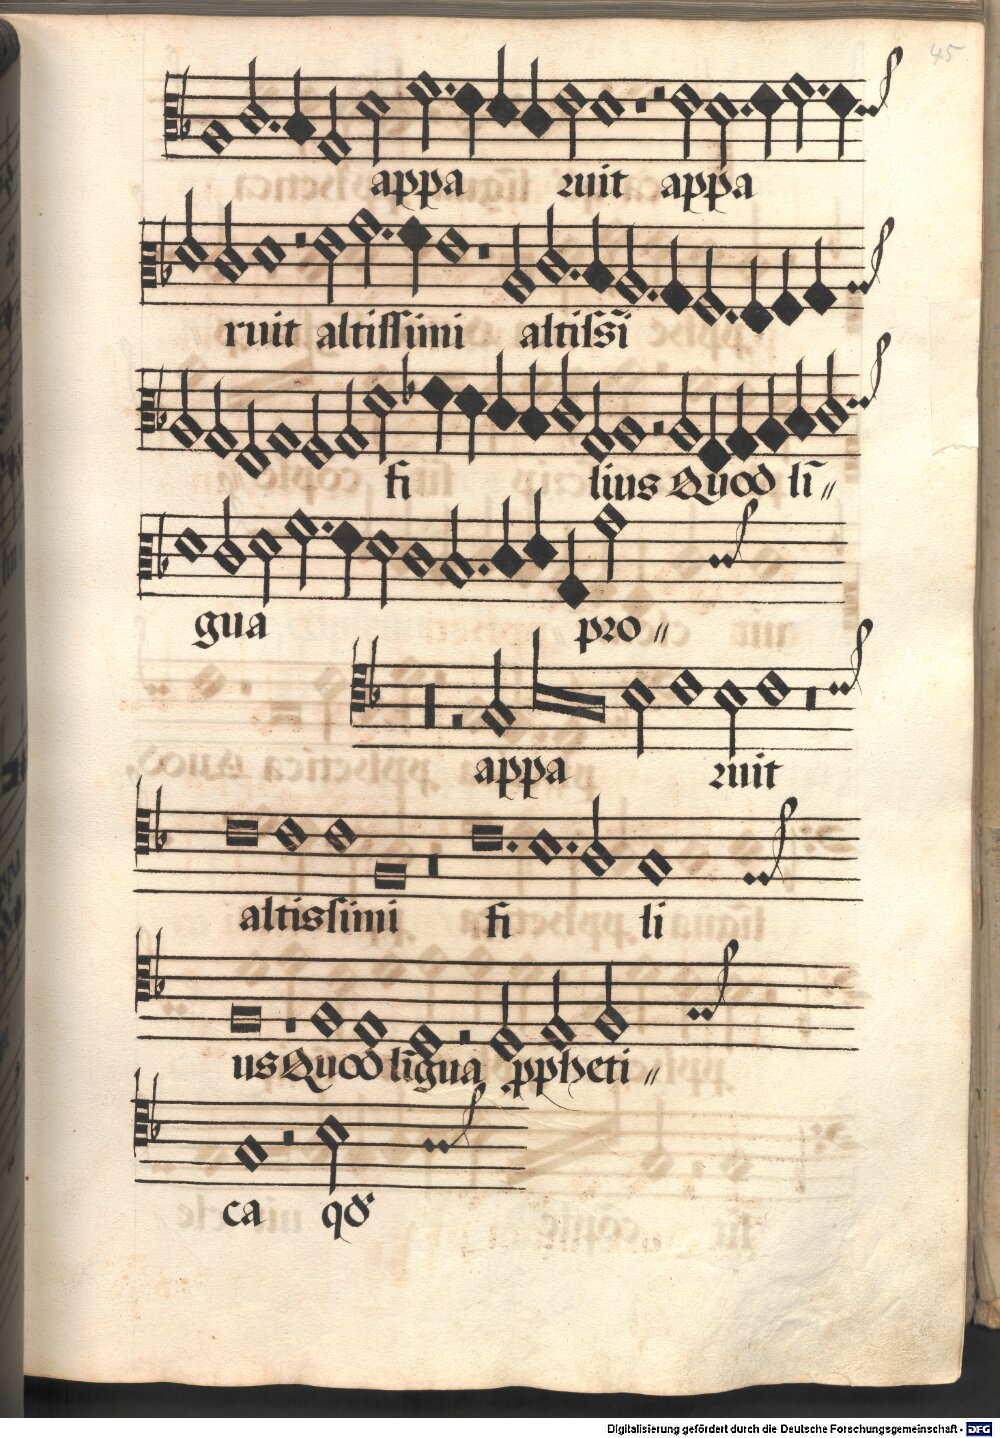 45
appa ruit appa
ruit altissimi altissī
fi lius Quod lī〃
gua pro〃
appa ruit
altissimi fi li
us Quod līgua ppheti〃
ca qd
Digitalisierung gefördert durch die Deutsche Forschungsgemeinschaft - DFG